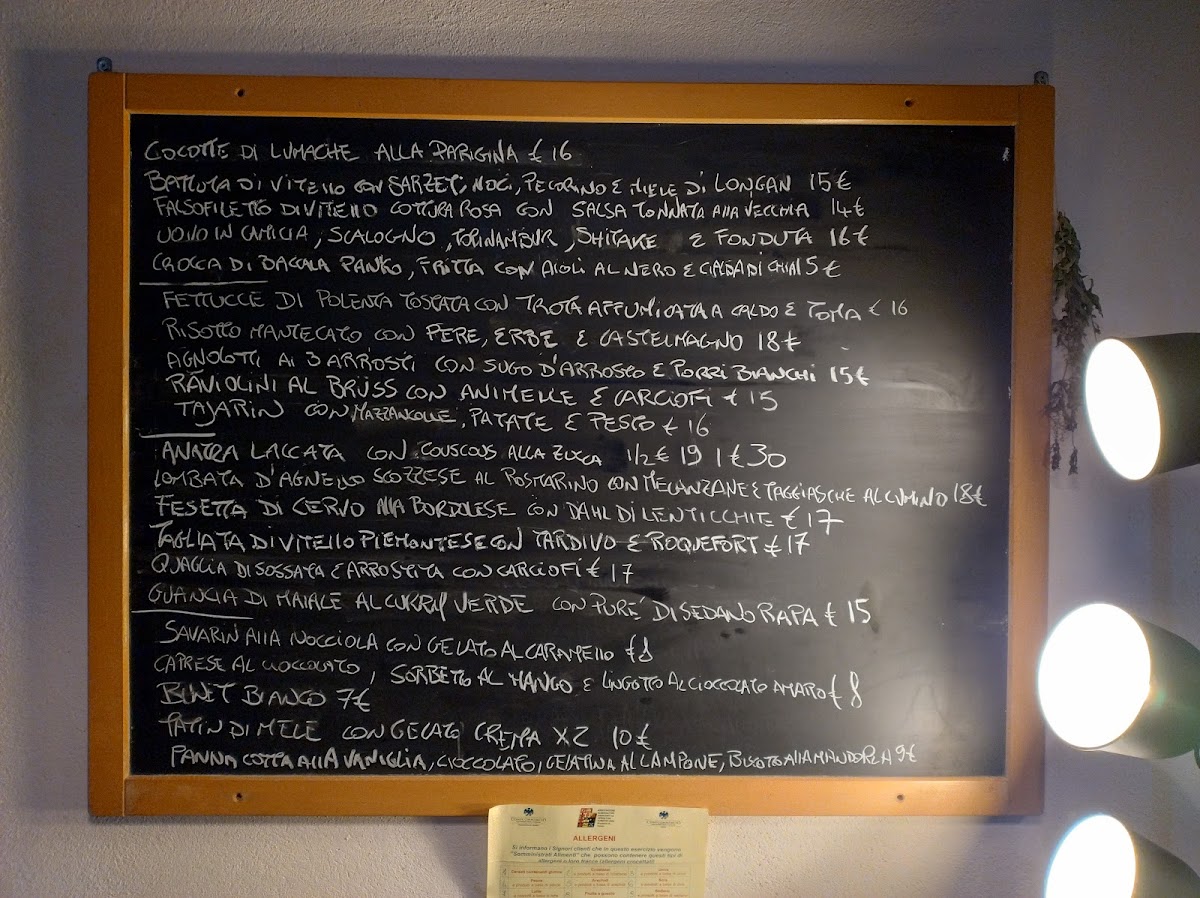 COCOTTE DI LUMACHE ALLA PARIGINA € 16
BATTUTA DI VITELLO CON SARZET, NOCI, PECORINO E MIELE DI LONGAN 15€
FALSOFILETTO DI VITELLO COTTURA ROSA CON SALSA TONNATA ALLA VECCHIA 14€
UOVO IN CAMICIA, SCALOGNO, TOPINAMBUR, SHITAKE E FONDUTA 16€
CROCCA DI BACCALA PANKO, FRITTA CON AIOLI AL NERO E CIALDA DI CHIA 15€
FETTUCCE DI POLENTA TOSTATA CON TROTA AFFUMICATA A CALDO E TOMA € 16
RISOTTO MANTECATO CON PERE, ERBE E CASTELMAGNO 18€
AGNOLOTTI AI 3 ARROSTI CON SUGO D'ARROSTO E PORRI BIANCHI 15€
RAVIOLINI AL BRÜSS CON ANIMELLE E CARCIOFI € 15
TAJARIN CON MAZZANCOLLE, PATATE E PESTO € 16
ANATRA LACCATA CON COUSCOUS ALLA ZUCCA 1/2 € 19 1 € 30
LOMBATA D'AGNELLO SCOZZESE AL ROSMARINO CON MELANZANE E TAGGIASCHE AL CUMINO 18€
FESETTA DI CERVO ALLA BORDOLESE CON DAHL DI LENTICCHIE € 17
TAGLIATA DI VITELLO PIEMONTESE CON TARDIVO E ROQUEFORT € 17
QUAGLIA DISOSSATA E ARROSTITA CON CARCIOFI € 17
GUANCIA DI MAIALE AL CURRY VERDE CON PURE' DI SEDANO RAPA € 15
SAVARIN ALLA NOCCIOLA CON GELATO AL CARAMELLO € 8
CAPRESE AL CIOCCOLATO, SORBETTO AL MANGO E LINGOTTO AL CIOCCOLATO AMARO € 8
BUNET BIANCO 7€
TATIN DI MELE CON GELATO CREMA X2 10€
PANNA COTTA ALLA VANIGLIA, CIOCCOLATO, GELATINA AL LAMPONE, BISCOTTO ALLA MANDORLA 9€
ALLERGENI
Si informano i Signori clienti che in questo esercizio vengono
"Somministrati Alimenti" che possono contenere questi tipi di